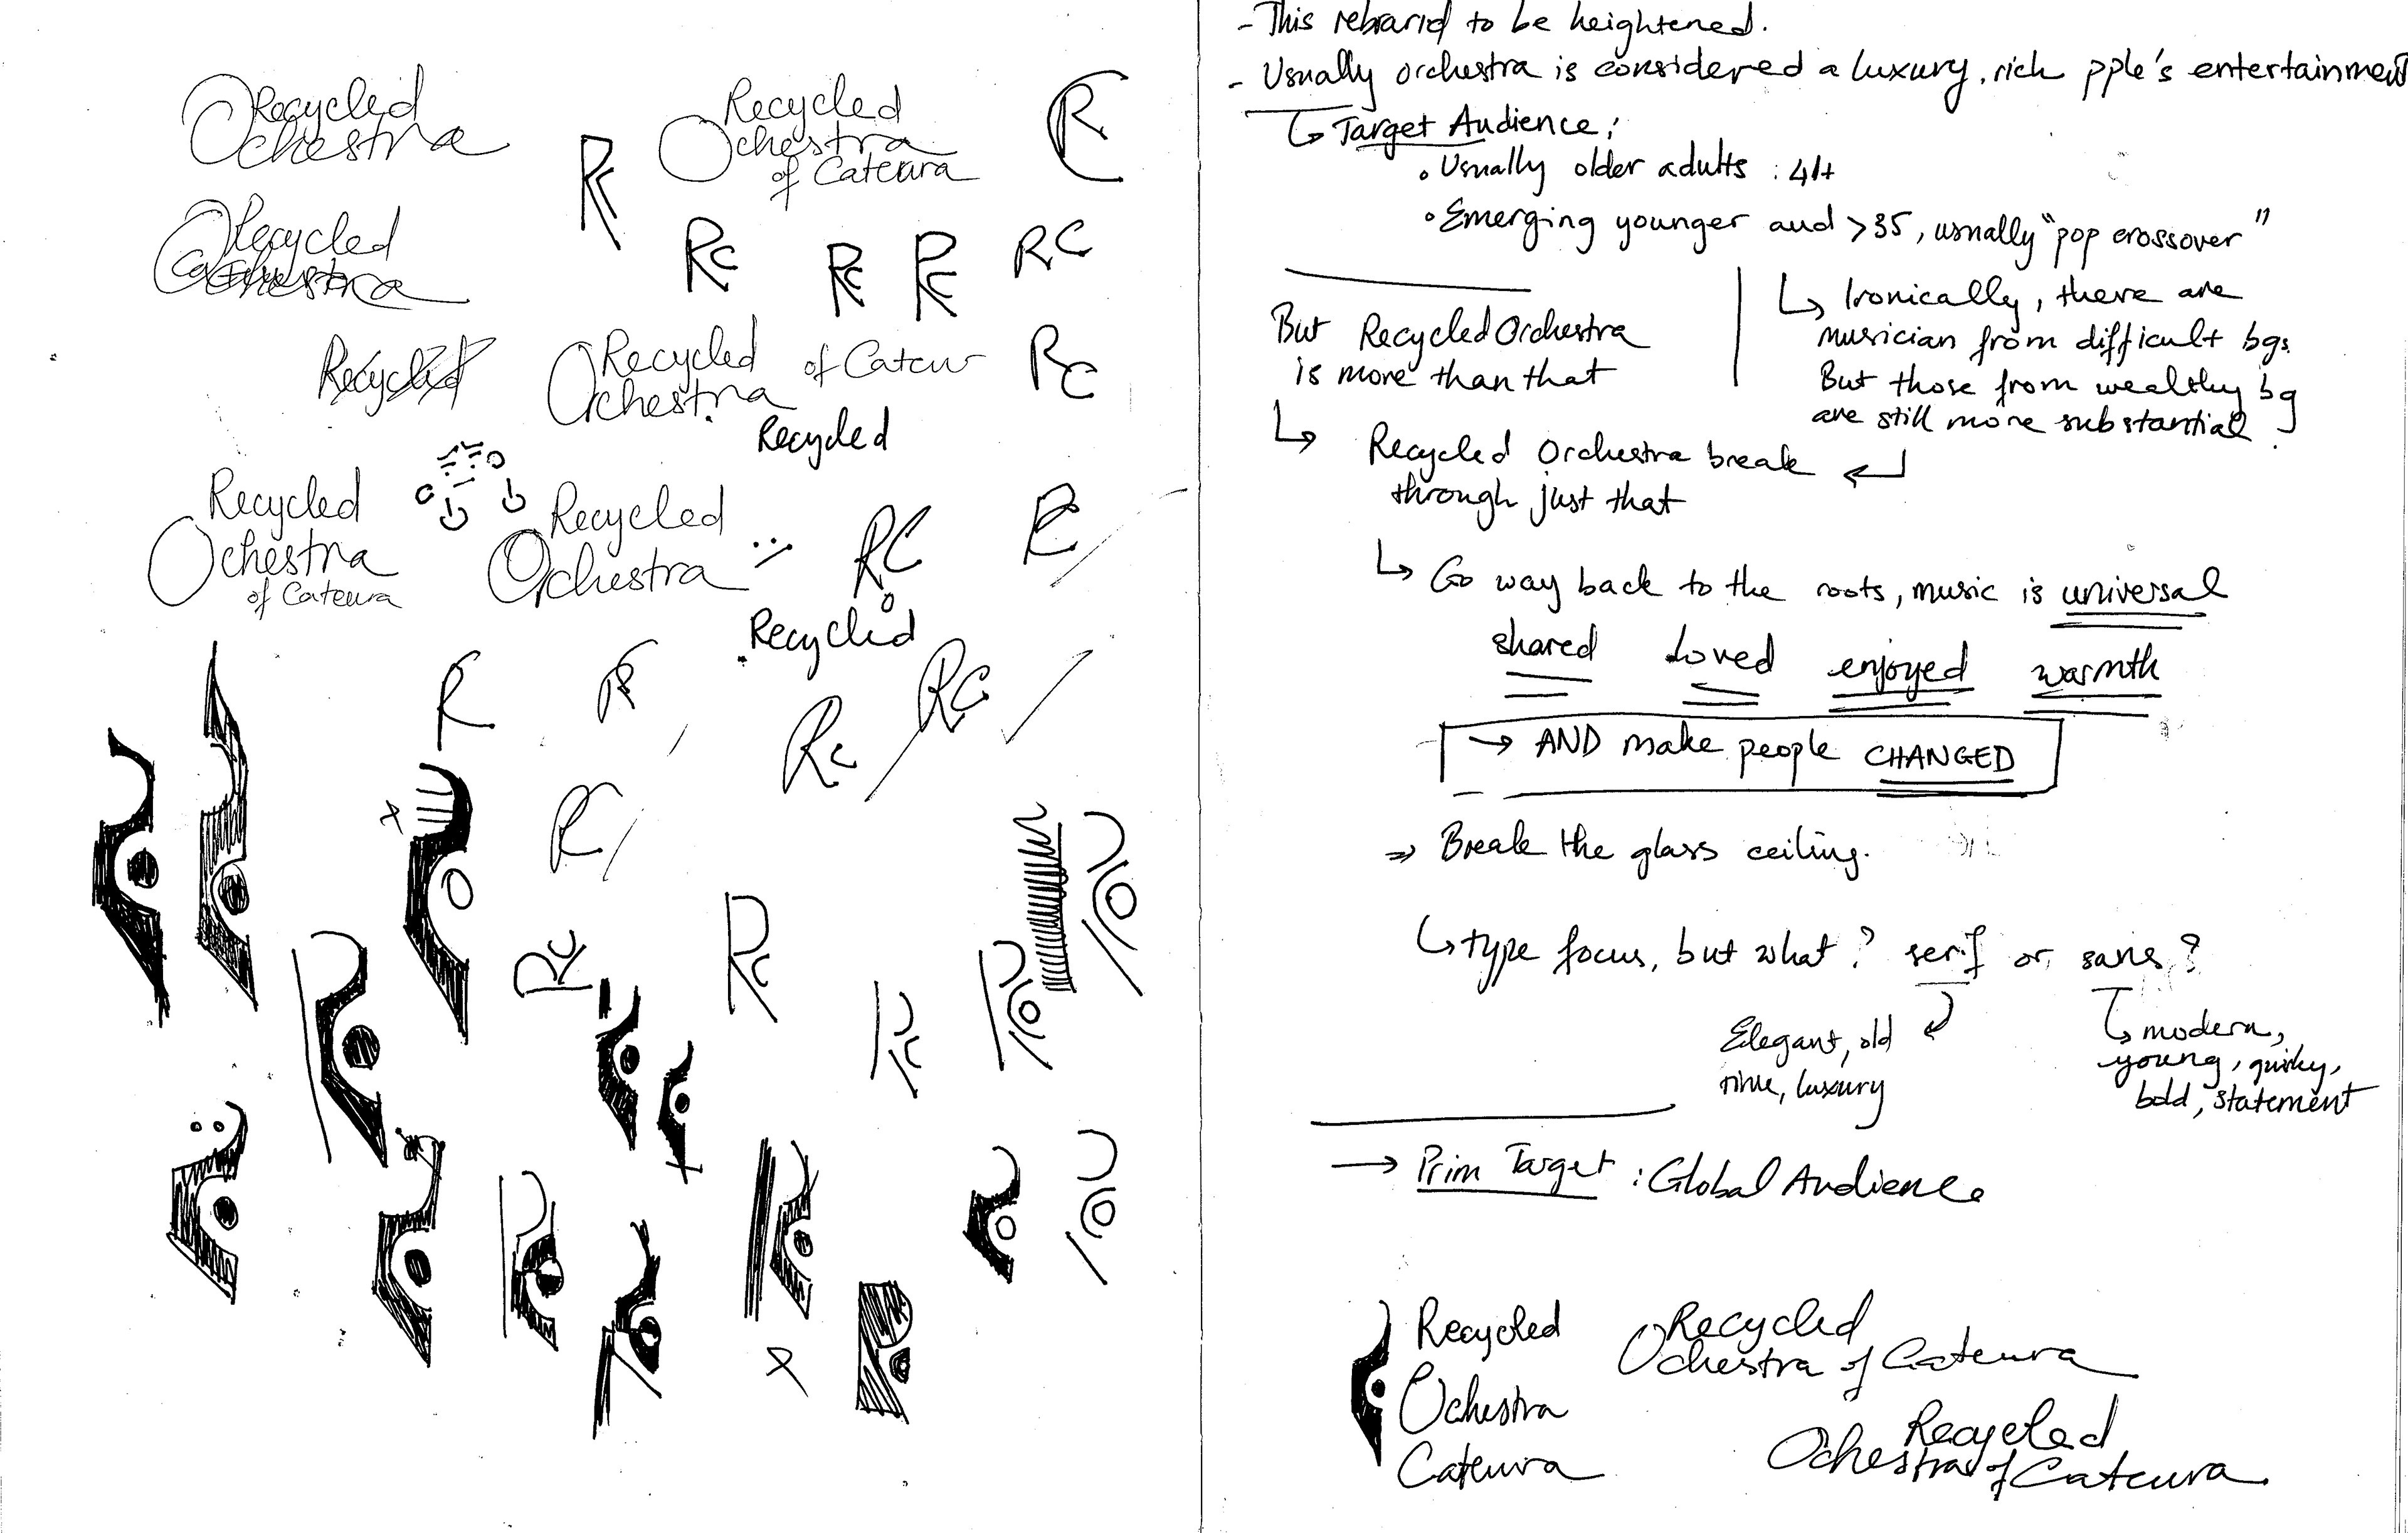 Recycled
Ochestra
Recycled
Ochestra
of Cateura
RC
Rc
Recycled
Rc
Rc
Rc
RC
Recycled
Recycled
Ochestra
of Cateu
RC
Recycled
Recycled
Ochestra
of Cateura
Recycled
Ochestra
RC
Recycled
R
Rc
RC
Rc
Rc
- This rebrand to be heightened.
- Usually orchestra is considered a luxury, rich pple's entertainment
Target Audience:
• Usually older adults : 41+
• Emerging younger aud >35, usually "pop crossover"
↳ Ironically, there are
musician from difficult bgs.
But those from wealthy bg
are still more substantial.
But Recycled Orchestra
is more than that
↳ Recycled Orchestra break
through just that
↳ Go way back to the roots, music is universal
shared loved enjoyed warmth
→ AND make people CHANGED
⇒ Break the glass ceiling.
↳ type focus, but what? serif or sans?
Elegant, old
time, luxury
↳ modern,
young, quirky,
bold, statement
→ Prim Target : Global Audience
Recycled
Ochestra
Cateura
Recycled
Ochestra of Cateura
Recycled
Ochestra of Cateura